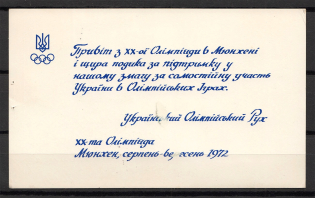 Привіт з XX-ої Олімпіяди в Мюнхені
і щира подяка за підтримку у
нашому змагу за самостійну участь
України в Олімпійських Іграх.
Український Олімпійський Рух
XX-та Олімпіяда
Мюнхен, серпень-вересень 1972